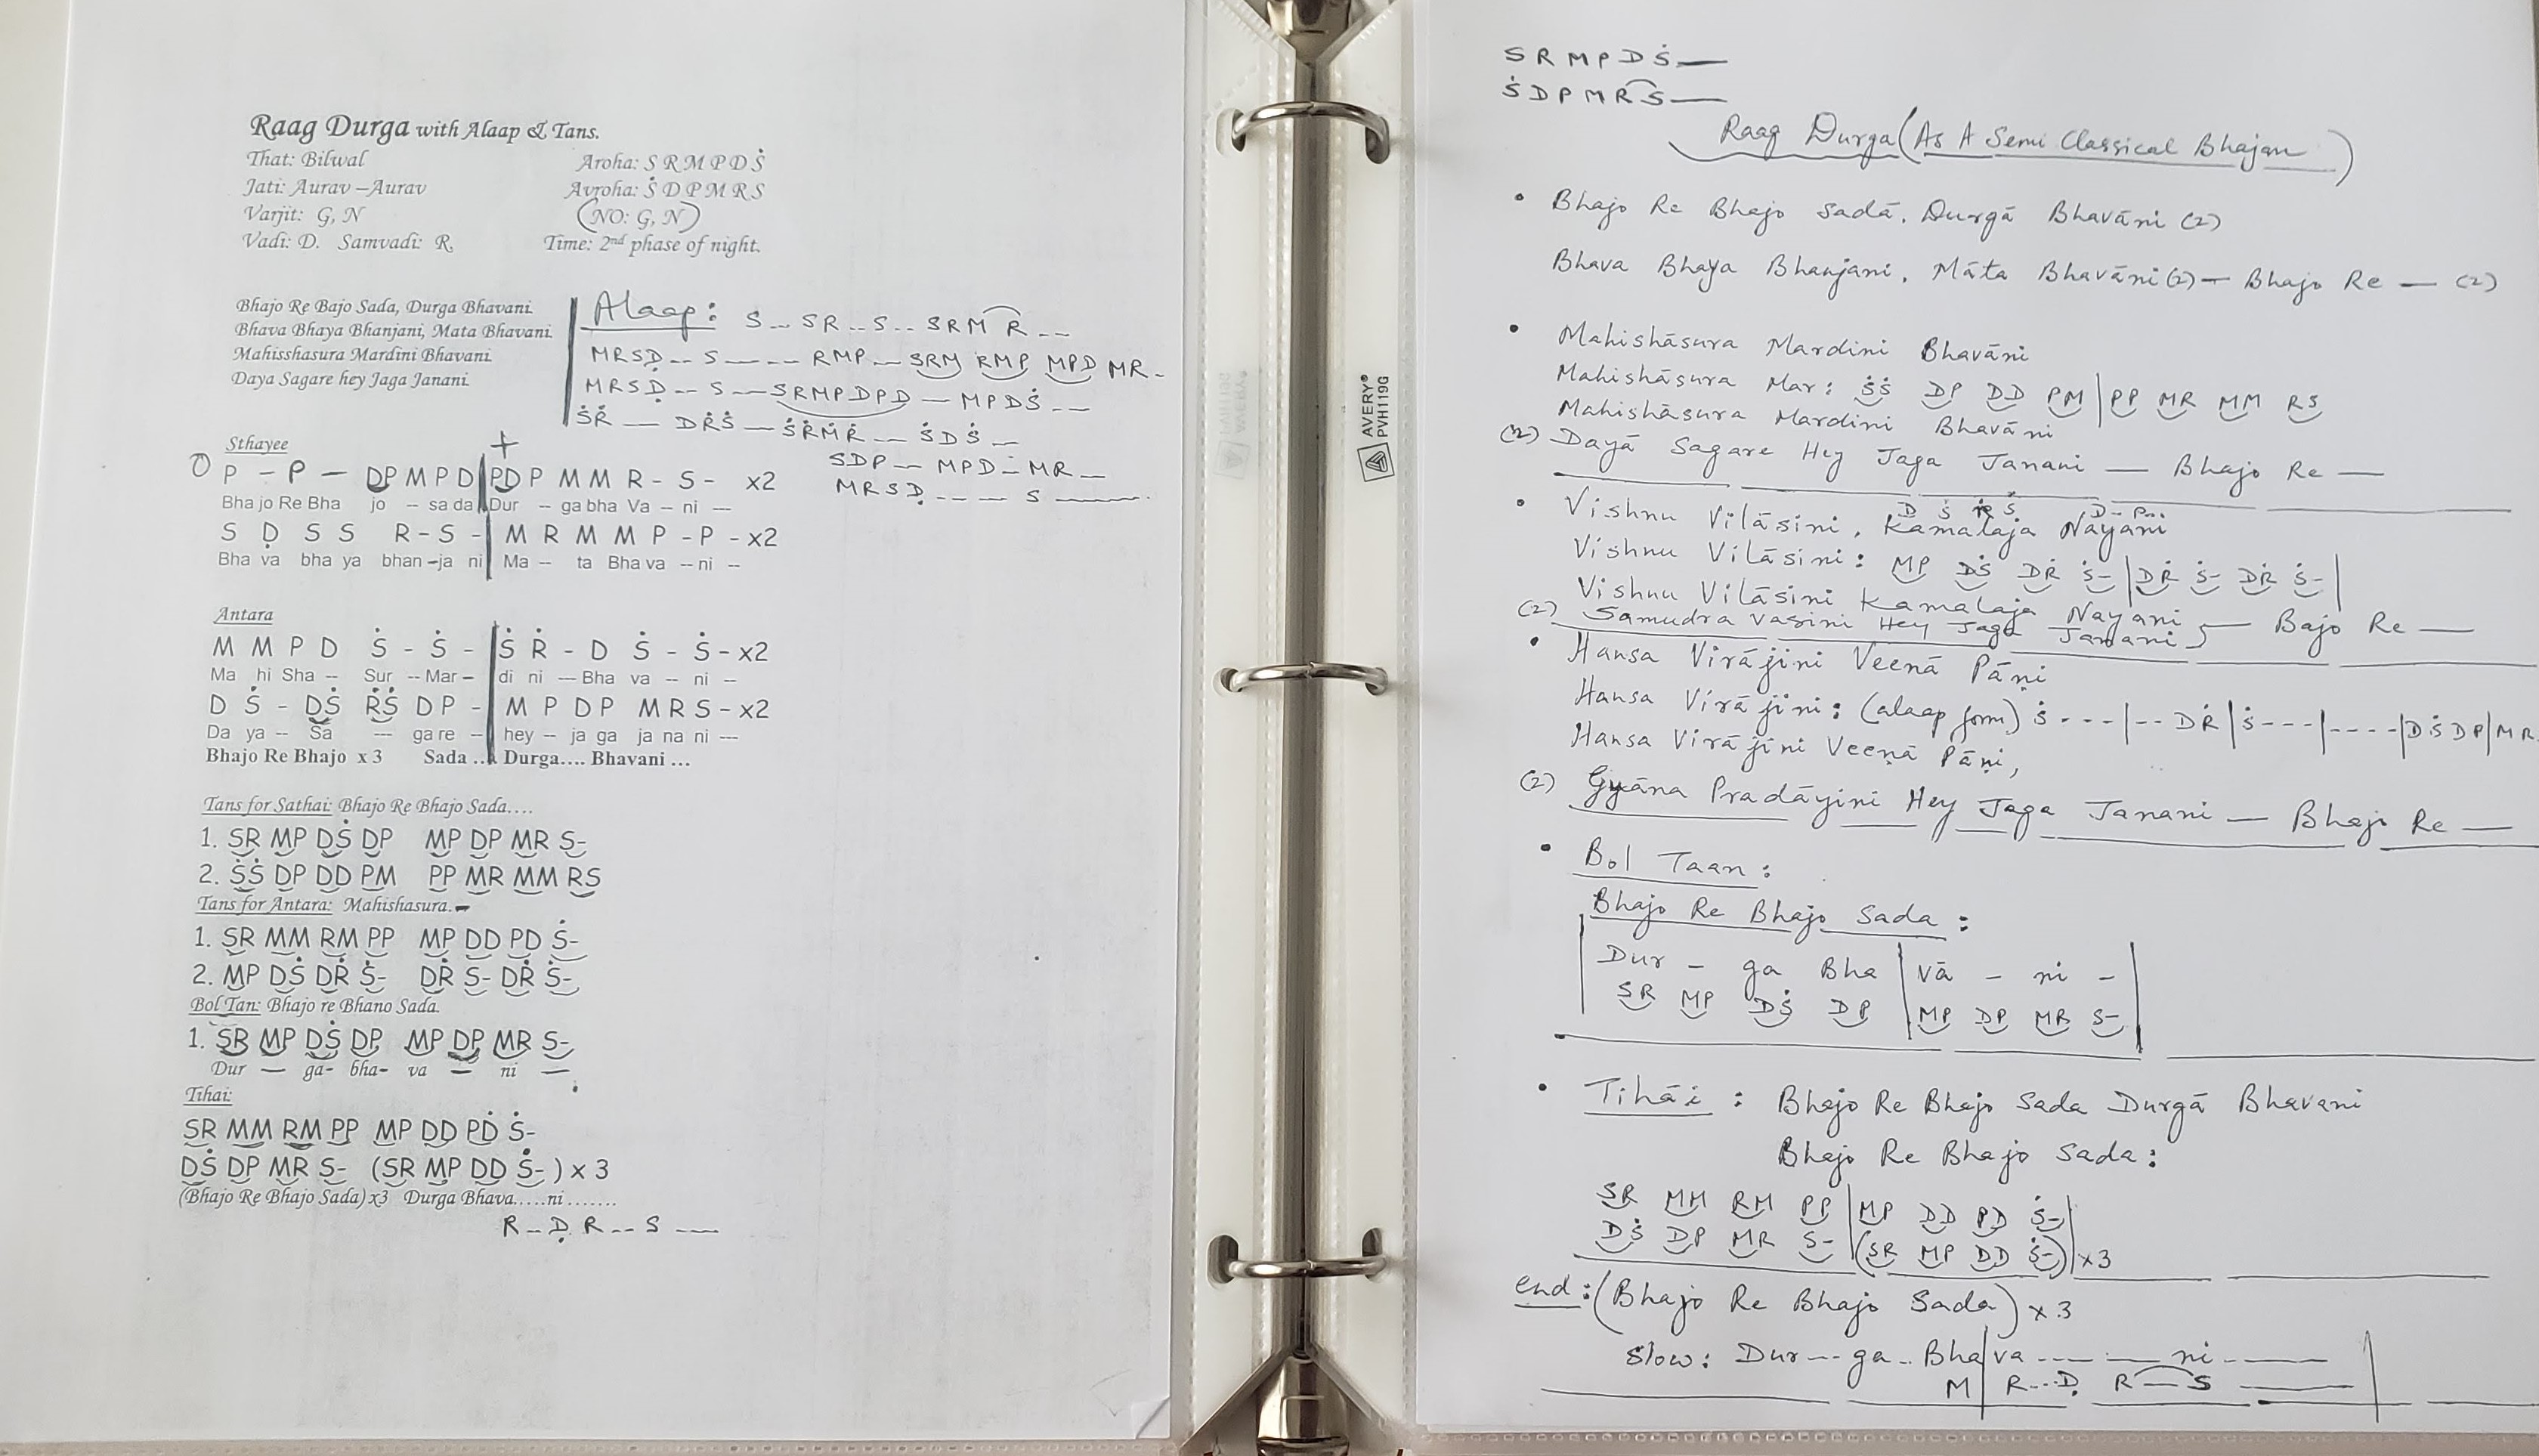 Raag Durga with Alaap & Tans.
That: Bilwal
Aroha: S R M P D Ṡ
Jati: Aurav –Aurav
Avroha: Ṡ D P M R S
Varjit: G, N
(NO: G, N)
Vadi: D. Samvadi: R.
Time: 2nd phase of night.
Bhajo Re Bajo Sada, Durga Bhavani.
Bhava Bhaya Bhanjani, Mata Bhavani.
Mahisshasura Mardini Bhavani.
Daya Sagare hey Jaga Janani.
Alaap: S -- SR -- S -- SRM R --
MRSḌ -- S ---- RMP -- SRM RMP MPD MR -
MRSḌ -- S -- SRMPDPD -- MPDṠ --
ṠṘ -- DṘṠ -- ṠṘṀṘ -- ṠDṠ --
SDP -- MPD -- MR --
MRSḌ ---- S ----
Sthayee
+
O P - P - DP M P D | PD P M M R - S - x2
Bha jo Re Bha jo -- sa da Dur -- ga bha Va -- ni ---
S Ḍ S S R - S - | M R M M P - P - x2
Bha va bha ya bhan -ja ni Ma -- ta Bha va -- ni --
Antara
M M P D Ṡ - Ṡ - | Ṡ Ṙ - D Ṡ - Ṡ - x2
Ma hi Sha -- Sur -- Mar -- di ni --- Bha va -- ni --
D Ṡ - DṠ ṘṠ D P - | M P D P M R S - x2
Da ya -- Sa --- ga re -- hey -- ja ga ja na ni ---
Bhajo Re Bhajo x 3 Sada ... Durga.... Bhavani ...
Tans for Sathai: Bhajo Re Bhajo Sada....
1. SR MP DṠ DP MP DP MR S-
2. ṠṠ DP DD PM PP MR MM RS
Tans for Antara: Mahishasura.-
1. SR MM RM PP MP DD PD Ṡ-
2. MP DṠ DṘ Ṡ- DṘ Ṡ- DṘ Ṡ-
Bol Tan: Bhajo re Bhano Sada.
1. SR MP DṠ DP MP DP MR S-
Dur — ga- bha- va — ni —
Tihai:
SR MM RM PP MP DD PD Ṡ-
DṠ DP MR S- (SR MP DD Ṡ-) x 3
(Bhajo Re Bhajo Sada) x3 Durga Bhava.....ni.......
R -- Ḍ R -- S ---
AVERY®
PVH119G
S R M P D Ṡ —
Ṡ D P M R S —
Raag Durga (As A Semi Classical Bhajan)
• Bhajo Re Bhajo Sadā, Durgā Bhavāni (2)
Bhava Bhaya Bhanjani, Māta Bhavāni (2) — Bhajo Re — (2)
• Mahishāsura Mardini Bhavāni
Mahishāsura Mar: ṠṠ DP DD PM | PP MR MM RS
Mahishāsura Mardini Bhavāni
(2) Dayā Sagare Hey Jaga Janani — Bhajo Re —
D Ṡ Ṙ Ṡ D - P...
• Vishnu Vilāsini, Kamalaja Nayani
Vishnu Vilāsini: MP DṠ DṘ Ṡ- | DṘ Ṡ- DṘ Ṡ- |
Vishnu Vilāsini Kamalaja Nayani
(2) Samudra Vasini Hey Jaga Janani — Bajo Re —
• Hansa Virājini Veenā Pāṇi
Hansa Virājini: (alaap form) Ṡ - - - | - - DṘ | Ṡ - - - | - - - - | DṠDP | MR
Hansa Virājini Veeṇā Pāṇi,
(2) Gyāna Pradāyini Hey Jaga Janani — Bhajo Re —
• Bol Taan:
Bhajo Re Bhajo Sada:
| Dur - ga Bha | vā - ni - |
| SR MP DṠ DP | MP DP MR S- |
• Tihāi: Bhajo Re Bhajo Sada Durgā Bhavani
Bhajo Re Bhajo Sada:
SR MM RM PP | MP DD PD Ṡ- |
DṠ DP MR S- | (SR MP DD Ṡ-) | x3
end: (Bhajo Re Bhajo Sada) x 3
Slow: Dur --- ga -- Bha | va ---- —— ni ----
M | R --- Ḍ R — S ——